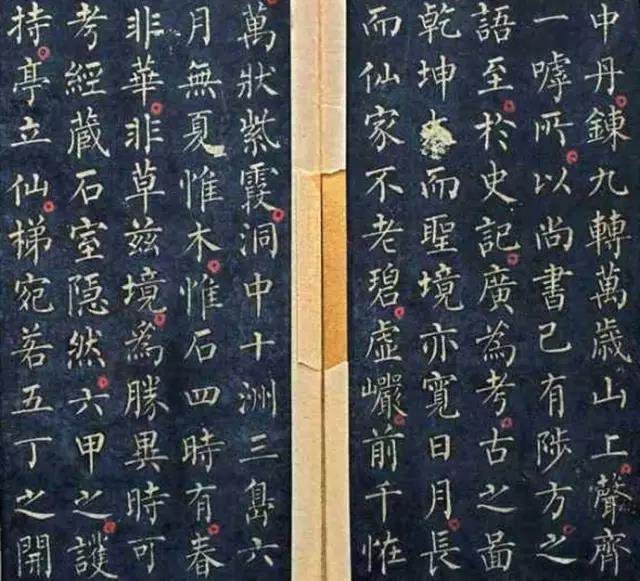 中丹鍊九轉萬歲山上聲齊
一嘑所以尚書已有陟方之
語至於史記廣為考古之啚
乾坤而聖境亦寬日月長
而仙家不老碧虛巗前千恠
萬狀紫霞洞中十洲三島六
月無夏惟木惟石四時有春
非華非草茲境為勝異時可
考經藏石室隱然六甲之護
持亭立仙梯宛若五丁之開